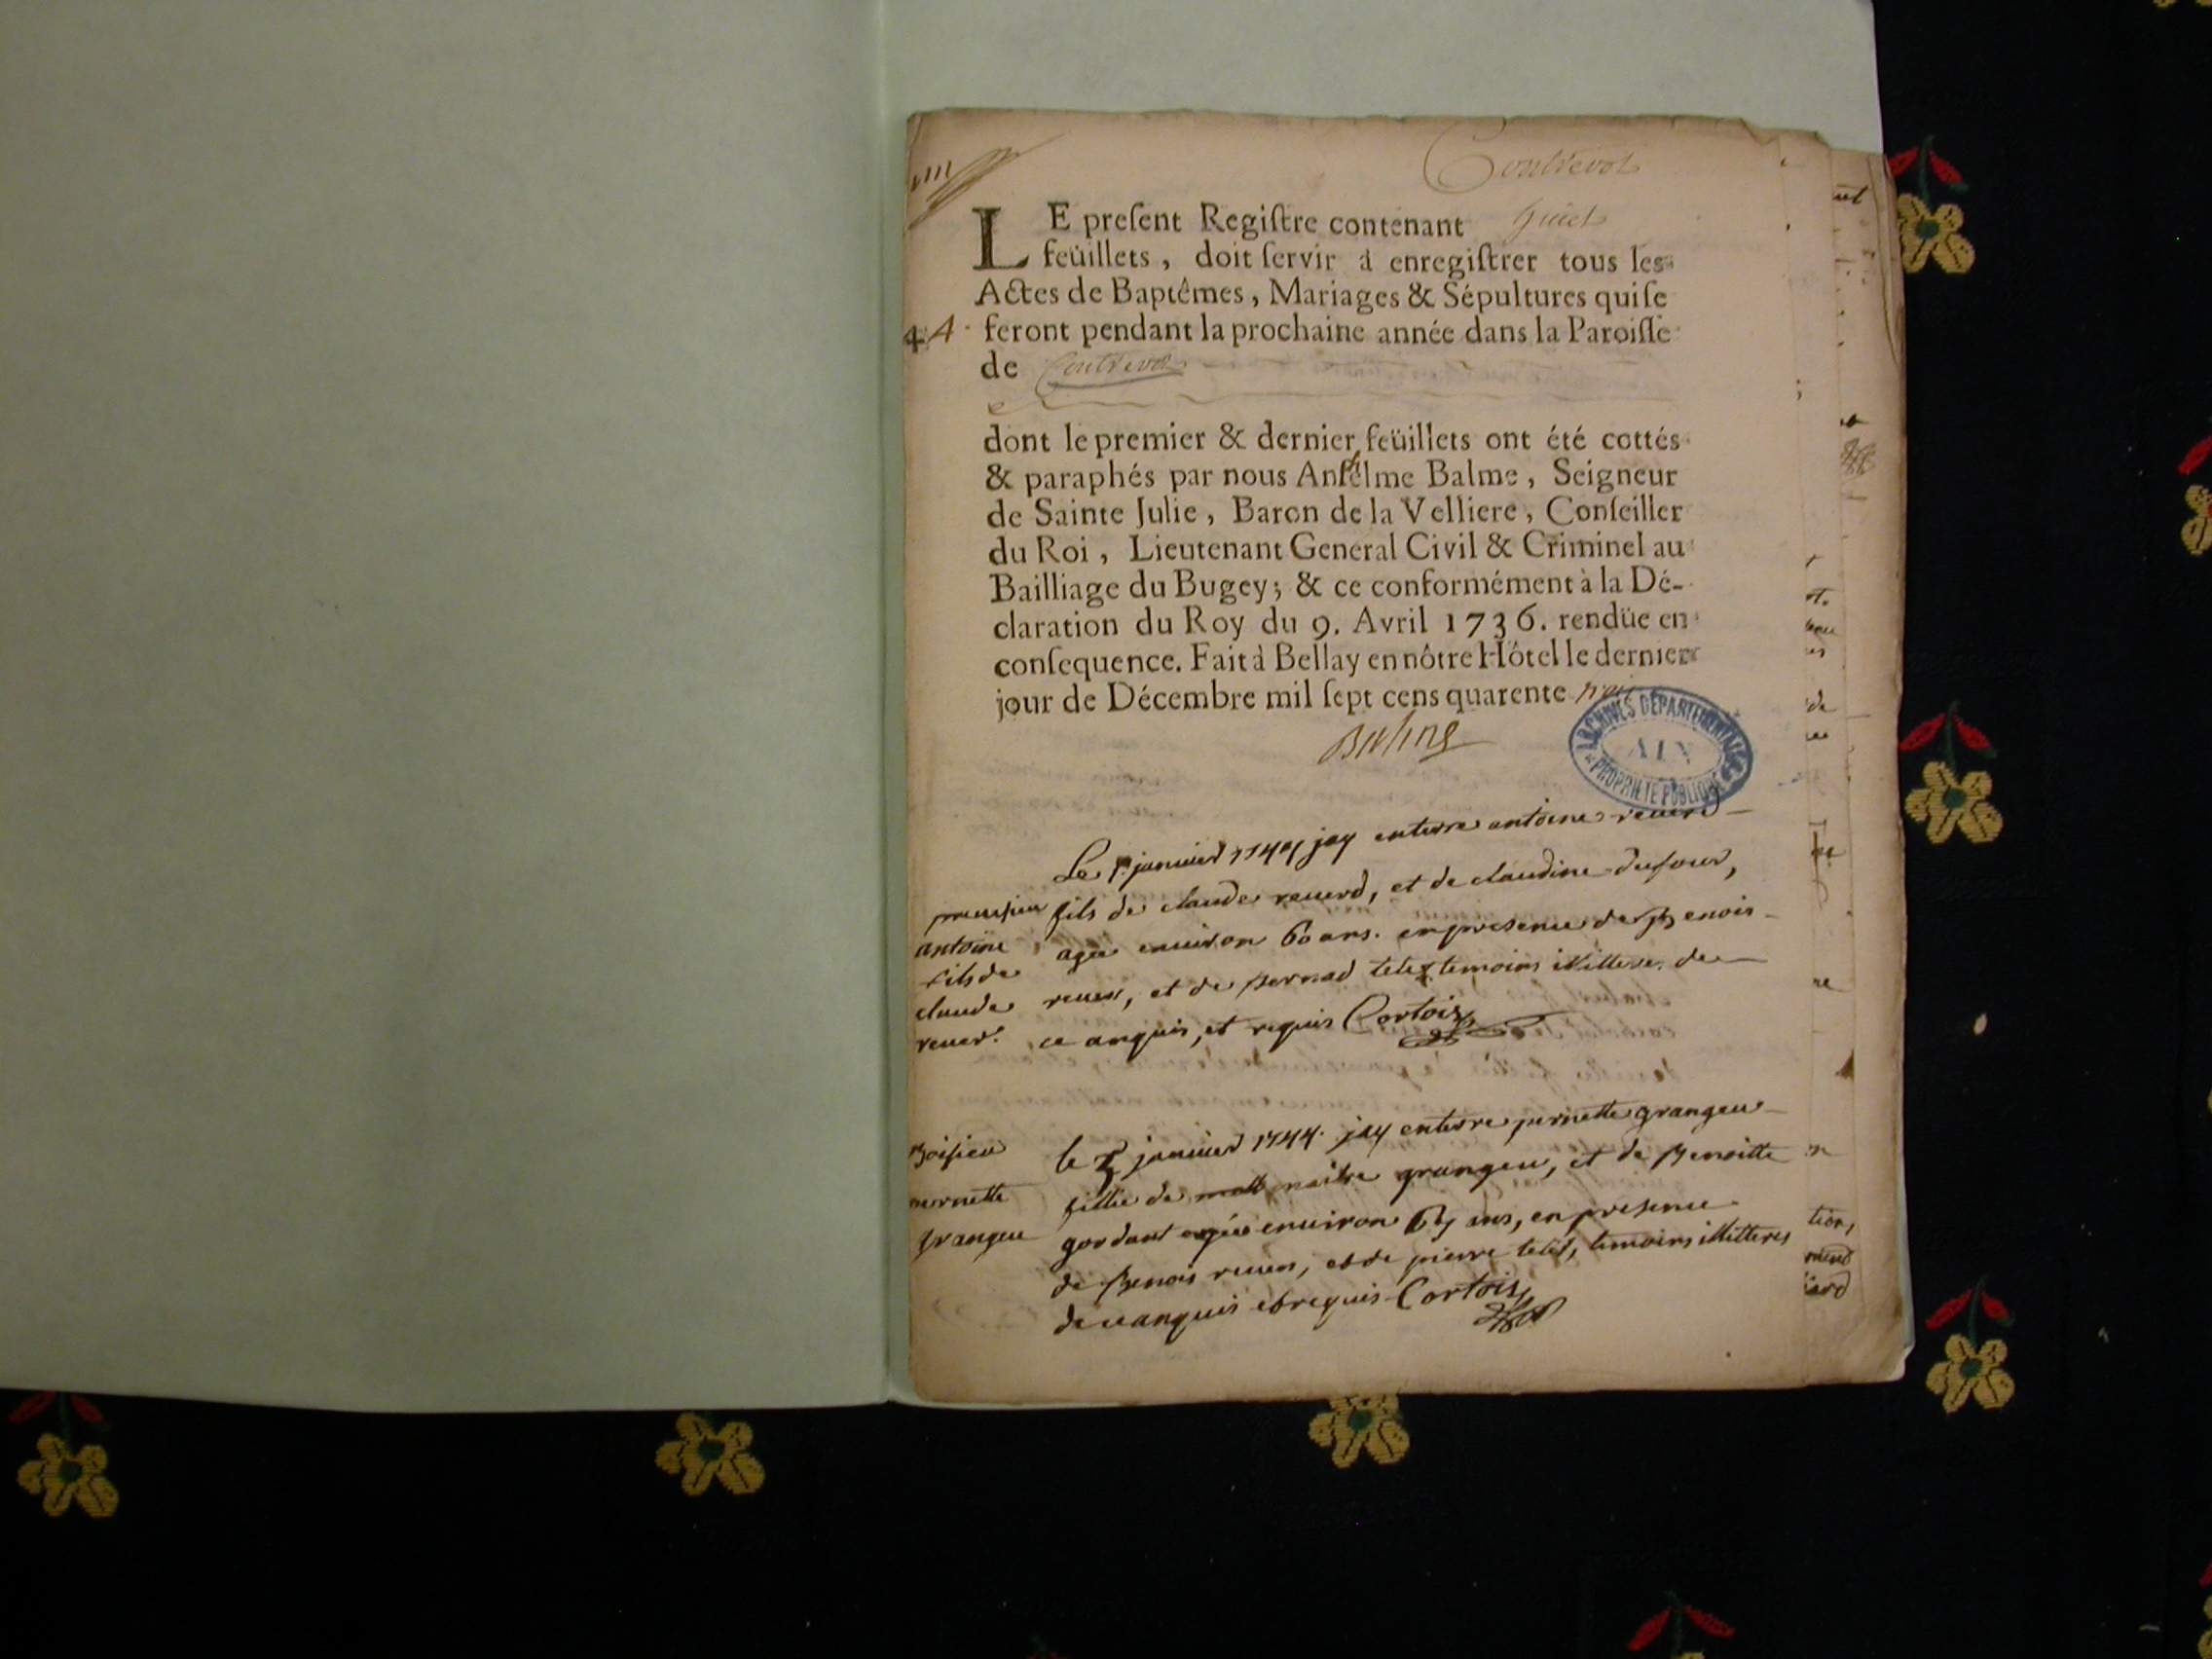 Contrevoz
LE preſent Regiſtre contenant huict
feüillets, doit ſervir à enregiſtrer tous les
Actes de Baptêmes, Mariages & Sépultures qui ſe
feront pendant la prochaine année dans la Paroiſſe
de Contrevoz
dont le premier & dernier feüillets ont été cottés
& paraphés par nous Anſelme Balme, Seigneur
de Sainte Julie, Baron de la Velliere, Conſeiller
du Roi, Lieutenant General Civil & Criminel au
Bailliage du Bugey; & ce conformément à la Dé-
claration du Roy du 9. Avril 1736. rendüe en
conſequence. Fait à Bellay en nôtre Hôtel le dernier
jour de Décembre mil ſept cens quarente trois
Balme
ARCHIVES DÉPARTEMENTALES
AIN
PROPRIÉTÉ PUBLIQUE
Le 1 janvier 1744 jay enterre antoine reverd
fils de claude reverd, et de claudine dufour,
agée environ 60 ans. en presence de Benois
et de Bernad telet temoins illitere. de
ce anquis, et requis Cortois
antoine
fils de
claude
rever.
le janvier 1744. jay enterre pernette grangeu
fillie de maitre grangeu, et de Benoitte
gordant agée environ ans, en presence
de Benois et de pierre telet, temoins illitteres
de ce anquis et requis Cortois
pernette
grangeu